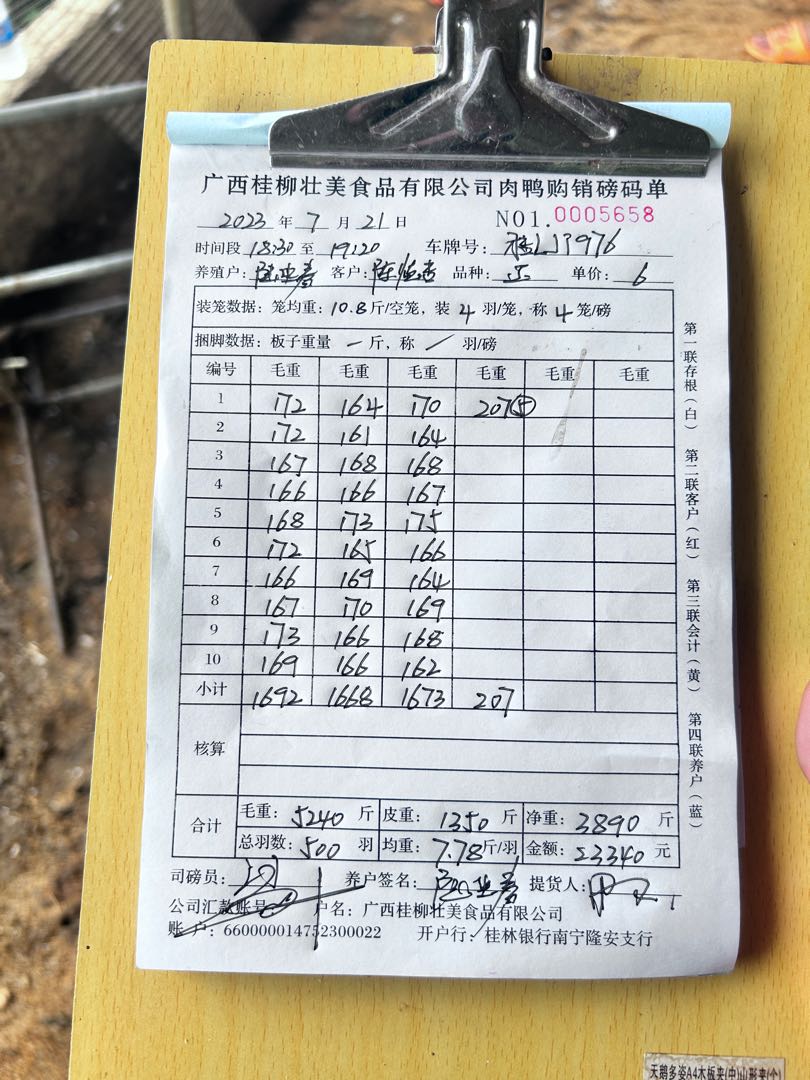 广西桂柳壮美食品有限公司肉鸭购销磅码单
2023 年 7 月 21 日 NO1. 0005658
时间段 18:30 至 19:20 车牌号: 桂LJ3976
养殖户: 客户: 品种: 单价: 6
装笼数据: 笼均重: 10.8 斤/空笼, 装 4 羽/笼, 称 4 笼/磅
捆脚数据: 板子重量 一 斤, 称 / 羽/磅
编号 毛重 毛重 毛重 毛重 毛重 毛重
1 172 164 170 207⑤
2 172 161 164
3 167 168 168
4 166 166 167
5 168 173 175
6 172 165 166
7 166 169 164
8 167 170 169
9 173 166 168
10 169 166 162
小计 1692 1668 1673 207
核算
合计 毛重: 5240 斤 皮重: 1350 斤 净重: 3890 斤
总羽数: 500 羽 均重: 7.78 斤/羽 金额: 23340 元
司磅员: 养户签名: 提货人:
公司汇款账号 户名: 广西桂柳壮美食品有限公司
账户: 660000014752300022 开户行: 桂林银行南宁隆安支行
第一联存根(白) 第二联客户(红) 第三联会计(黄) 第四联养户(蓝)
天鹅多姿A4木板夹(中)山形夹(个)